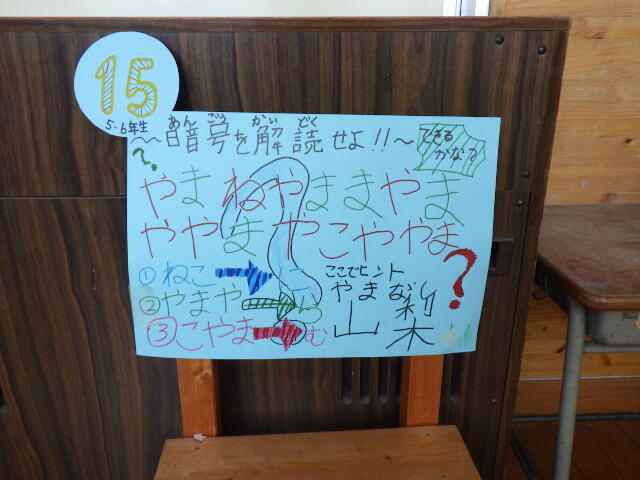 15
5・6年生
～暗号を解読せよ!!～
あん ごう かい どく
できる
かな?
?
やまねやままやま
ややまやこややま
①ねこ→に
②やまや→ら
③こやま→む
?
ここでヒント
やまなし
山梨